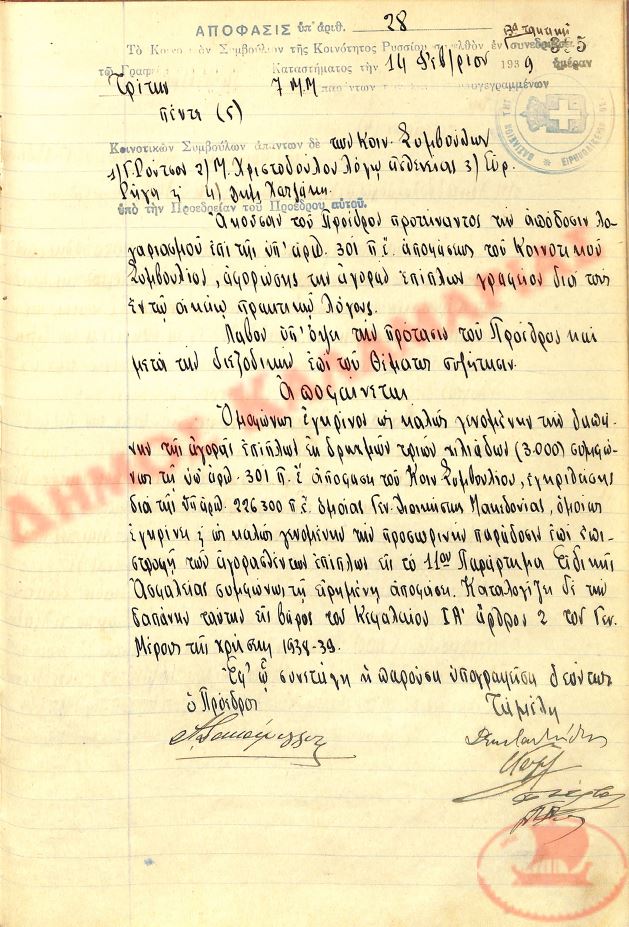 ΑΠΟΦΑΣΙΣ ὑπ' ἀριθ. 28
Τακτική
Τὸ Κοινοτικὸν Συμβούλιον τῆς Κοινότητος Ρυσσίου συνελθὸν ἐν συνεδριάσει 395
τῷ Γραφείῳ Καταστήματος τὴν 14 Φεβρ/ου 1939 ἡμέραν
Τρίτην 7 Μ.Μ παρόντων ὑπογεγραμμένων
πέντε (5)
Κοινοτικῶν Συμβούλων ἀπόντων δὲ τῶν Κοιν. Συμβούλων
1) Γ. Ρόντσου 2) Μ. Χριστοδούλου λόγῳ ἀσθενείας 3)
Ρήγα ἢ 4) Δημ Χατζάκη.
ὑπὸ τὴν Προεδρείαν τοῦ Προέδρου αὐτοῦ.
Ἀκοῦσαν τοῦ Προέδρου προτείναντος τὴν ἀπόδοσιν λο
γαριασμοῦ ἐπὶ τῆς ὑπ' ἀριθ. 301 π.ἔ. ἀποφάσεως τοῦ Κοινοτικοῦ
Συμβουλίου, ἀφορώσης τὴν ἀγορὰν ἐπίπλων γραφείου διὰ τοὺς
ἐν τῷ οἰκείῳ πρακτικῷ λόγους.
Λαβὸν ὑπ' ὄψει τὴν πρότασιν τοῦ Προέδρου καὶ
μετὰ τὴν διεξοδικὴν ἐπὶ τοῦ θέματος συζήτησιν.
Ἀποφαίνεται
Ὁμοφώνως ἐγκρῖνον ὡς καλῶς γενομένην τὴν δαπά
νην τῆς ἀγορᾶς ἐπίπλων ἐκ δραχμῶν τριῶν χιλιάδων (3.000) συμφώ
νως τῇ ὑπ' ἀριθ. 301 π.ἔ ἀποφάσει τοῦ Κοιν Συμβουλίου, ἐγκριθείσης
διὰ τῆς ὑπ' ἀριθ. 226300 π.ἔ. ὁμοίας Γεν. Διοικήσεως Μακεδονίας, ὁμοίως
ἐγκρίνει ἢ ὡς καλῶς γενομένην τὴν προσωρινὴν παράδοσιν ἐπὶ ἐπι
στροφῇ τῶν ἀγορασθέντων ἐπίπλων εἰς τὸ 11ον Παράρτημα Εἰδικῆς
Ἀσφαλείας συμφώνως τῇ εἰρημένῃ ἀποφάσει. Καταλογίζει δὲ τὴν
δαπάνην ταύτην εἰς βάρος τοῦ Κεφαλαίου ΙΑ' ἄρθρον 2 τοῦ Γεν.
Μέρους τῆς χρήσεως 1938-39.
Ἐφ' ᾧ συνετάγη ἡ παροῦσα ὑπογραφεῖσα δεόντως
ὁ Πρόεδρος Τὰ μέλη
ΔΗΜΟΣ ΚΑΛΑΜΑΡΙΑΣ